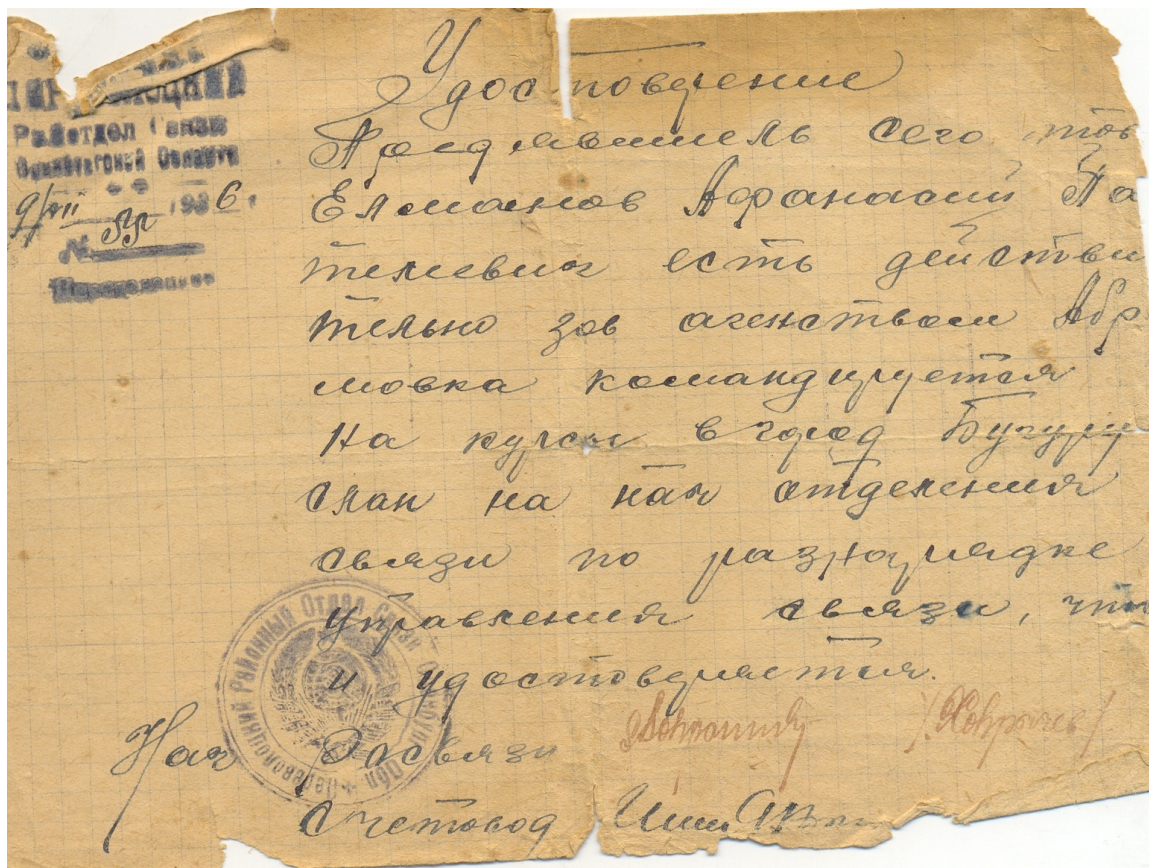 Райотдел Связи
Оренбургской Области
9/VII 1936 г.
№
Удостоверение
Предявитель сего тов
Елманов Афанасий Па
телевич есть действи
тельно зав агенством Абр
мовка командируется
на курсы в город Бугуру
слан на нач отделения
связи по разнарядке
управления связи, что
и удостоверяется.
Нач Росвязи
Счетовод
Переволоцкий Районный Отдел Связи Оренбург. Обл.